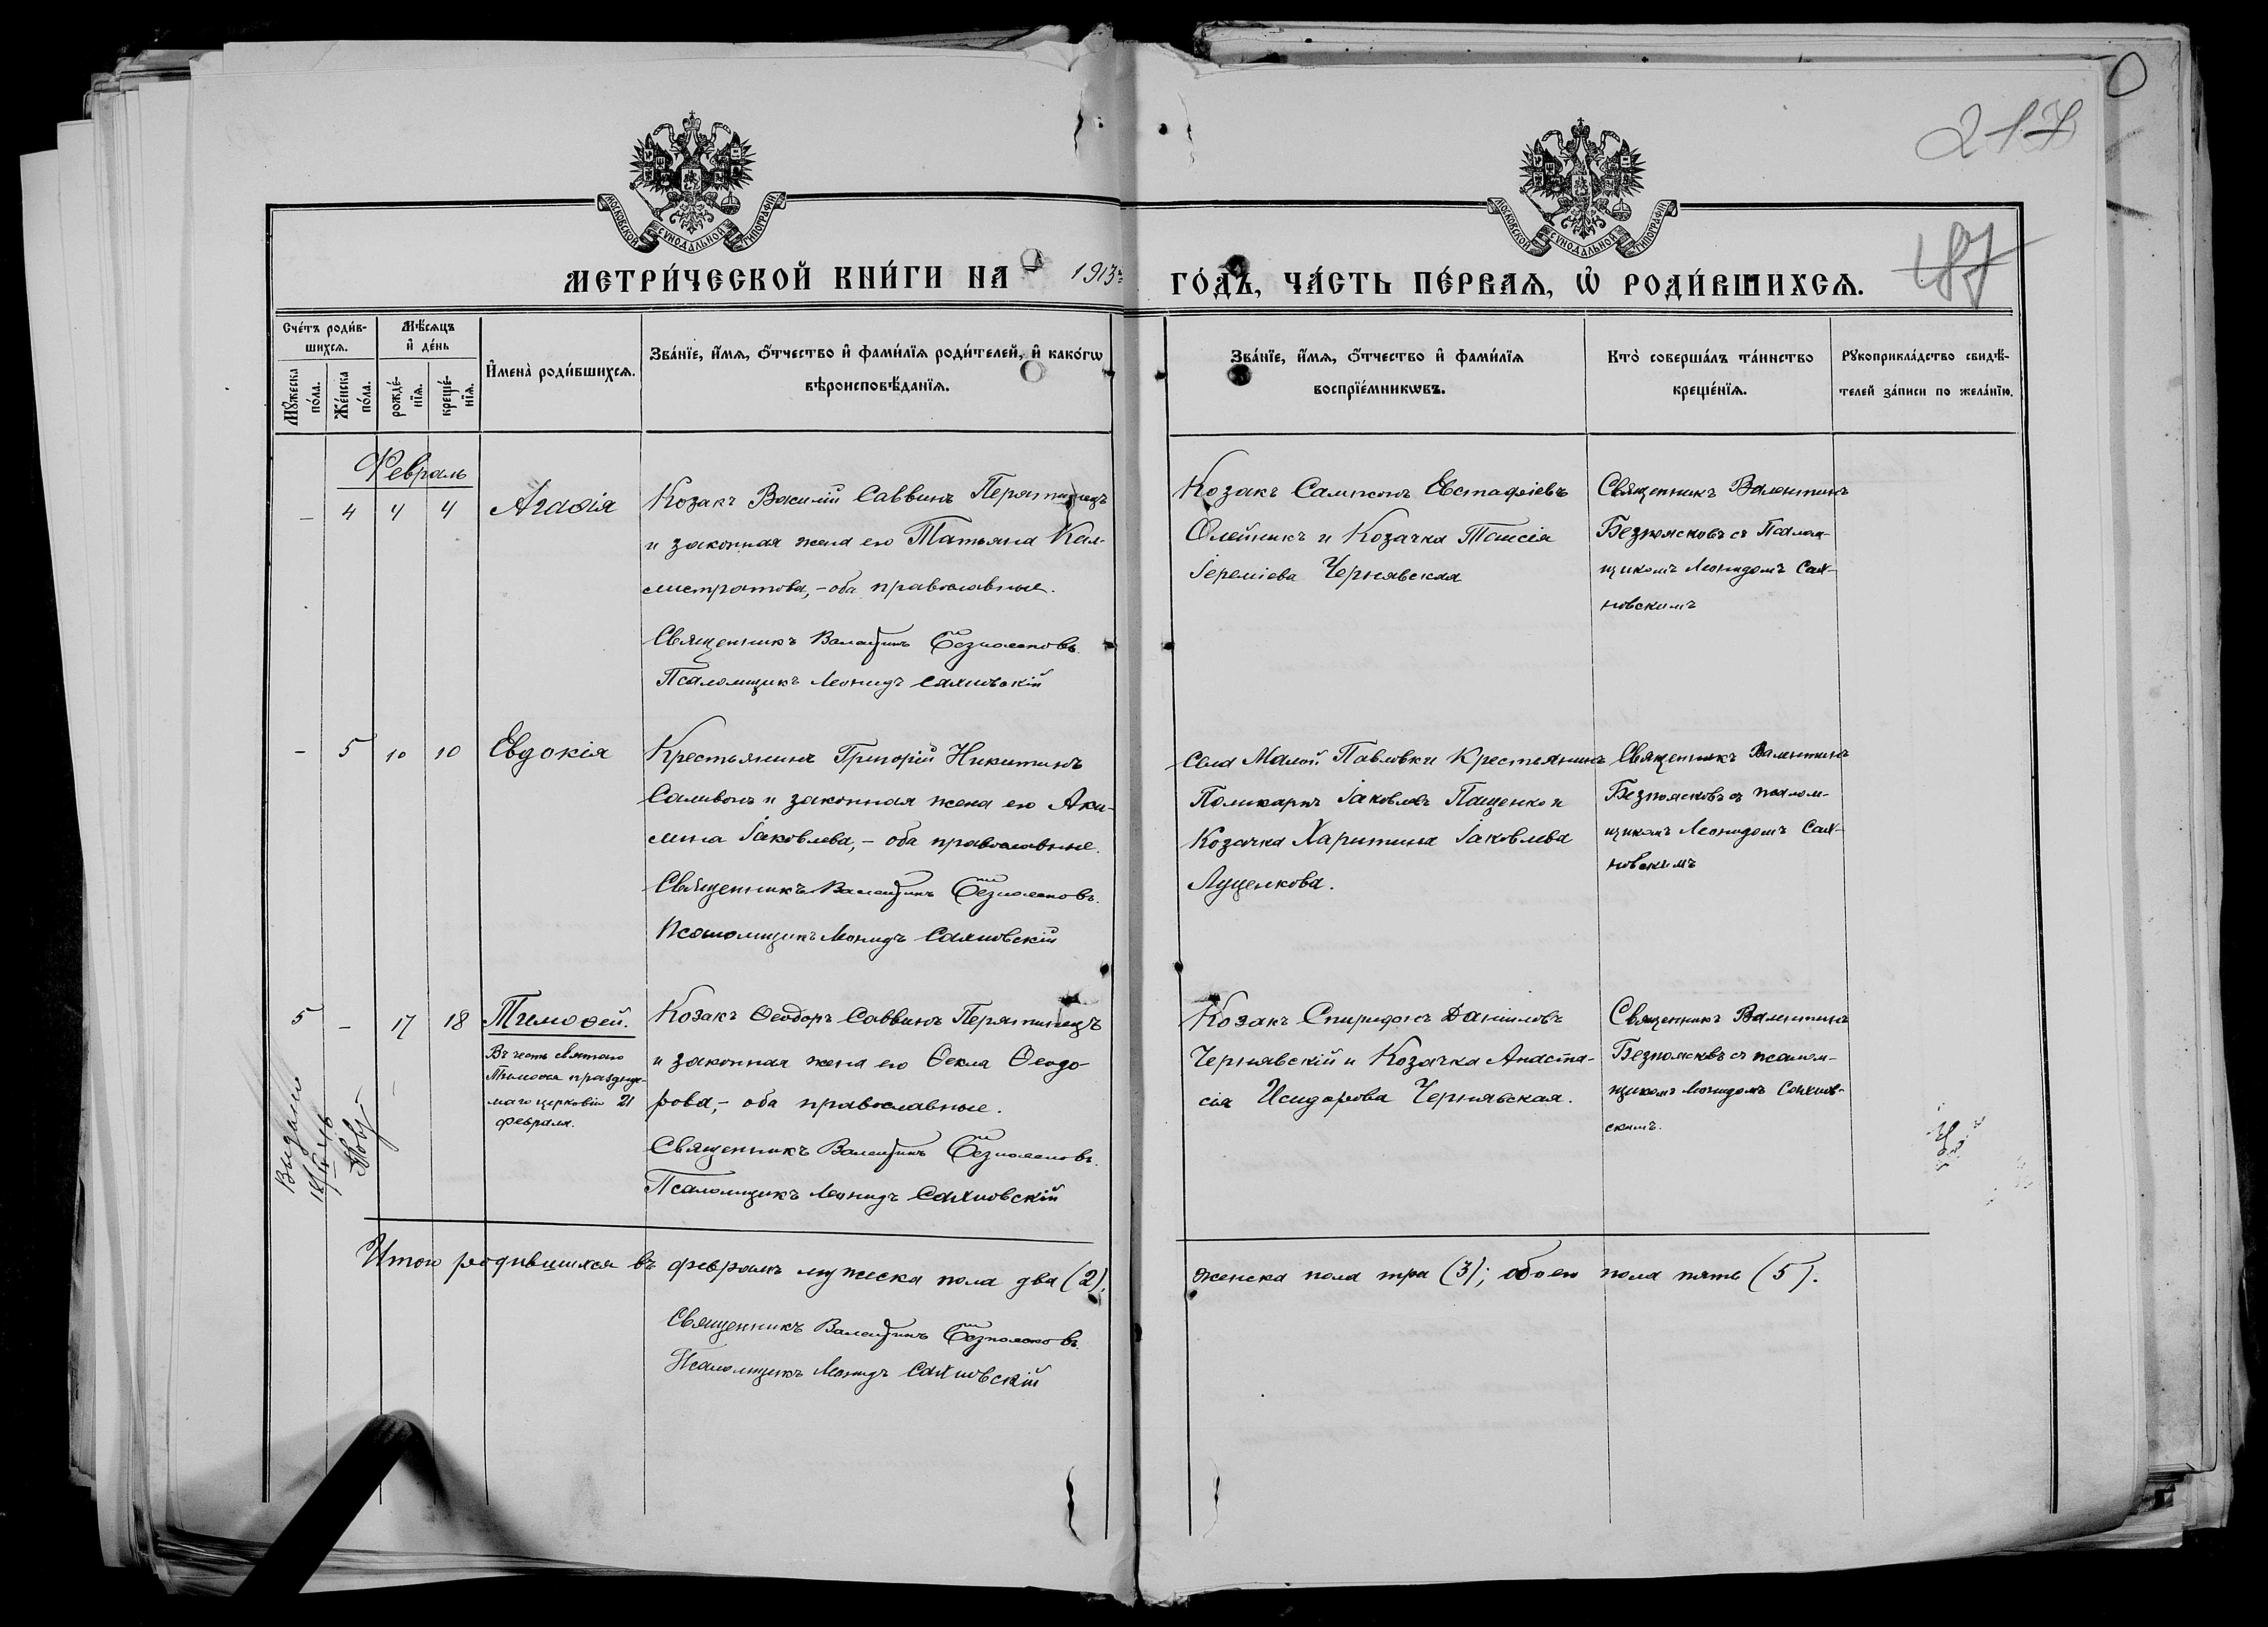 217
187
МОСКОВСКОЙ СУНОДАЛЬНОЙ ТИПОГРАФІИ
МОСКОВСКОЙ СУНОДАЛЬНОЙ ТИПОГРАФІИ
МЕТРИ́ЧЕСКОЙ КНИ́ГИ НА 1913 й
ГО́ДЪ, ЧА́СТЬ ПЕ́РВАѦ, Ѡ҆ РОДИ́ВШИХСѦ.
Сче́тъ роди́в-
шихсѧ.
Мꙋ́жеска
по́ла.
Же́нска
по́ла.
Мѣ́сѧцъ
и҆ де́нь
рожде́-
нїѧ.
креще́-
нїѧ.
И҆мена̀ роди́вшихсѧ.
Зва́нїе, и҆́мѧ, ѻ҆́тчество и҆ фами́лїѧ роди́телей, и҆ како́гѡ
вѣроисповѣ́данїѧ.
Зва́нїе, и҆́мѧ, ѻ҆́тчество и҆ фами́лїѧ
воспрїе́мникѡвъ.
Кто̀ соверша́лъ та́инство
креще́нїѧ.
Рꙋкоприкла́дство свидѣ́-
телей за́писи по жела́нїю.
Февраль
– 4 4 4 Агаѳія
Козакъ Василій Саввинъ Перятинецъ
и законная жена его Татьяна Кал-
листратова, – оба православные.
Священникъ Валентинъ Безпоясковъ.
Псаломщикъ Леонидъ Сахновскій
Козакъ Сампсонъ Евстафіевъ
Олейникъ и Козачка Таисія
Іереміева Чернявская
Священникъ Валентинъ
Безпоясковъ съ Псалом-
щикомъ Леонидомъ Сах-
новскимъ
– 5 10 10 Евдокія
Крестьянинъ Григорій Никитинъ
Саливонъ и законная жена его Аки-
лина Іаковлева, – оба православные.
Священникъ Валентинъ Безпоясковъ.
Псаломщикъ Леонидъ Сахновскій
Села Малой Павловки Крестьянинъ
Поликарпъ Іаковлевъ Пащенко и
Козачка Харитина Іаковлева
Луценкова.
Священникъ Валентинъ
Безпоясковъ съ псалом-
щикомъ Леонидомъ Сах-
новскимъ
5 – 17 18 Тимоѳей.
Въ честь святого
Тимоѳея празднуе-
маго церковію 21
февраля.
Козакъ Ѳеодоръ Саввинъ Перятинецъ
и законная жена его Ѳекла Ѳеодо-
рова, – оба православные.
Священникъ Валентинъ Безпоясковъ.
Псаломщикъ Леонидъ Сахновскій
Козакъ Спиридонъ Даніиловъ
Чернявскій и Козачка Анаста-
сія Исидорова Чернявская.
Священникъ Валентинъ
Безпоясковъ съ псалом-
щикомъ Леонидомъ Сахнов-
скимъ.
Выдано
Итого родившихся въ февралѣ мужеска пола два (2);
женска пола три (3); обоего пола пять (5).
Священникъ Валентинъ Безпоясковъ.
Псаломщикъ Леонидъ Сахновскій